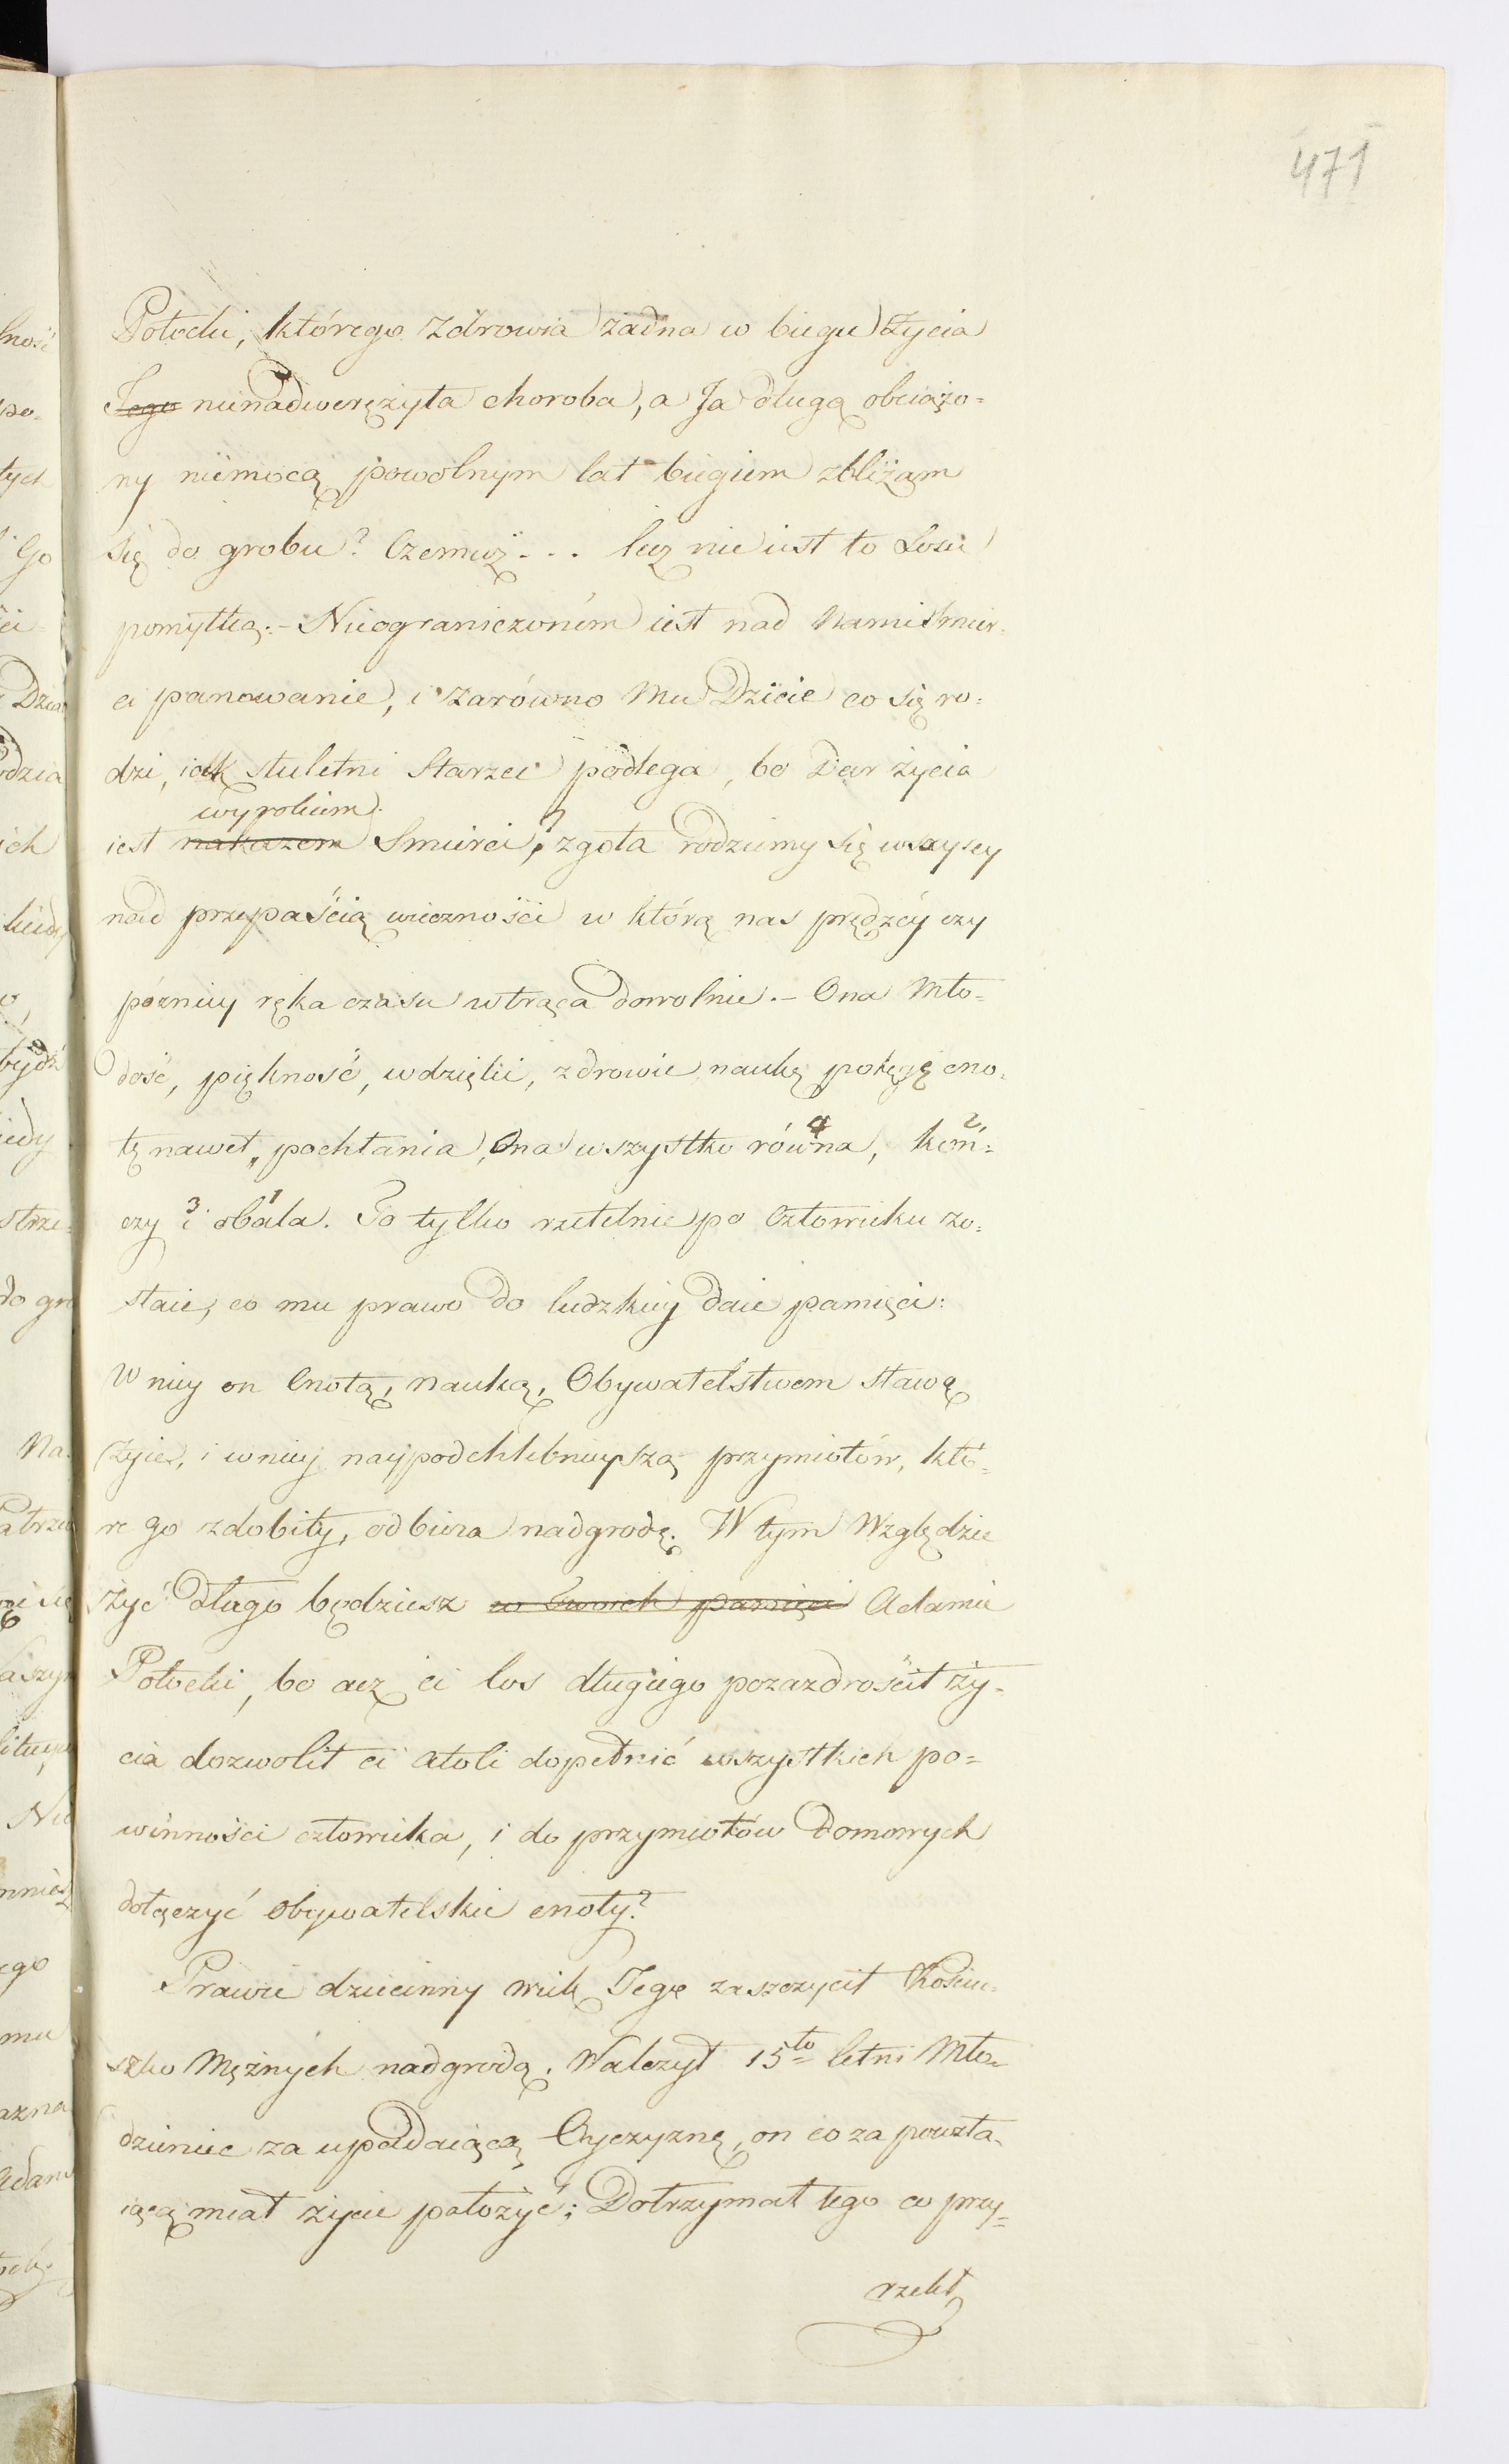 471
Potocki, którego zdrowia żadna w biegu życia
Jego nienadweręzyła choroba, a Ja długą obciążo=
ny niemocą powolnym lat biegiem zbliżam
się do grobu? Czemuż... lecz nie iest to Losu
pomyłką.- Nieograniczoném iest nad nami Smier=
ci panowanie, i zarówno mu Dziecie co się ro=
dzi, iak stuletni Starzec podlega, bo Dar życia
wyrokiem
iest nakazem Smierci; zgoła rodziemy się wszyscy
nad przepaścią wieczności w którą nas prędzéy czy
pózniey ręka czasu wtrąca dowolnie.- Ona Mło=
dość, piękność, wdzięki, zdrowie naukę potęgę cno=
tę nawet, pochłania, Ona wszystko równa, 4 koń= 2
czy i 3 obala 1. To tylko rzetelnie po Człowieku zo=
staie, co mu prawo do ludzkiey daie pamięci:
W niey on Cnotą, nauką, Obywatelstwem sławą
żyie, i w niey naypodchlebnieyszą przymiotów, któ=
re go zdobiły, odbiera nadgrodę. W tym Względzie
żyć długo będziesz w pamięci Adamie
Potocki, bo acz ci los długiego pozazdrościł ży=
cia dozwolił ci atoli dopełnić wszystkich po=
winności człowieka, i do przymiotów domowych
dołączyć obywatelskie cnoty?
Prawie dziecinny wiek Jego zaszczycił Kościu=
szko Mężnych nadgrodą. Walczył 15to letni Mło=
dzieniec za upadaiącą Oyczyznę, on co za powsta=
iącą miał życie położyć; Dotrzymał tego co przy=
rzekł